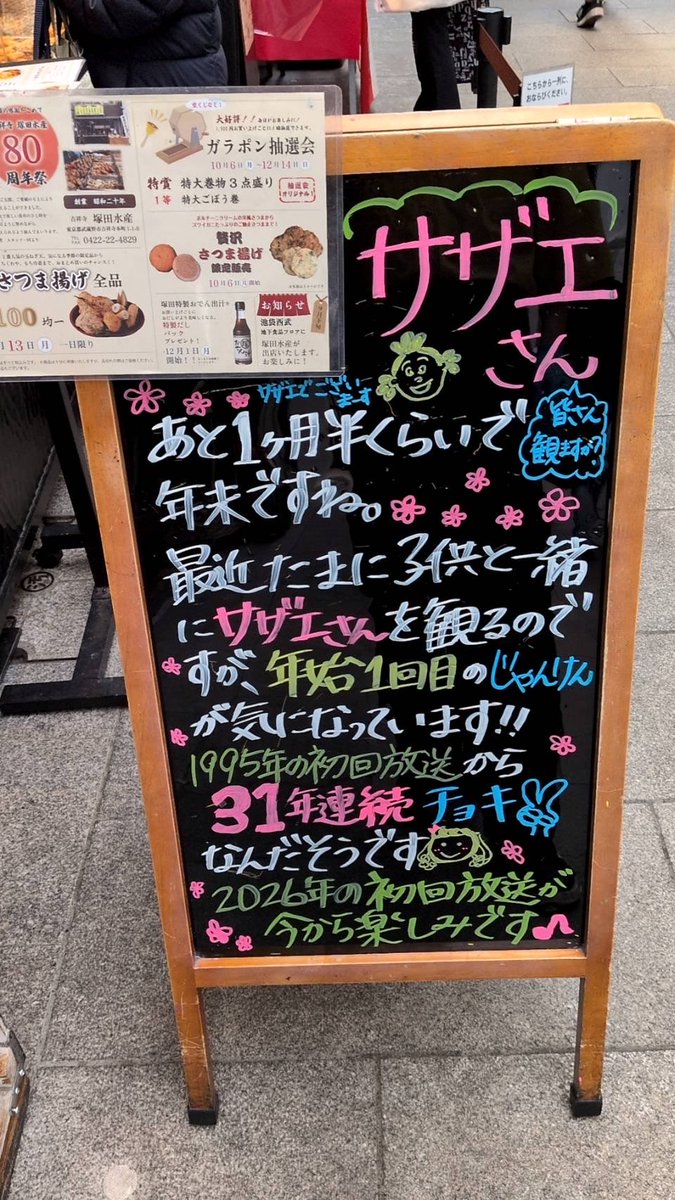 こちらから一列に、
おならびください。
吉祥寺 塚田水産
80
周年祭
創業 昭和二十年
吉祥寺 塚田水産
0422-22-4829
さつま揚げ 全品
100 均一
月13日(月) 一日限り
大好評!!
ガラポン抽選会
10月6日(月)〜12月14日(日)
特賞 特大巻物3点盛り
1等 特大ごぼう巻
抽選会
オリジナル!
贅沢
さつま揚げ
限定販売
10月6日(月)開始
塚田特製おでん出汁を
特製だし
パック
プレゼント!
12月1日(月)
開始!!
お知らせ
池袋西武
地下食品フロアに
塚田水産が
出店いたします。
お楽しみに!
サザエ
さん
サザエでござい
ます
皆さん
観ますか?
あと1ヶ月半くらいで
年末ですね。
最近たまに子供と一緒
にサザエさんを観るので
すが、年始1回目のじゃんけん
が気になっています!!
1995年の初回放送から
31年連続チョキ
なんだそうです
2026年の初回放送が
今から楽しみです♪